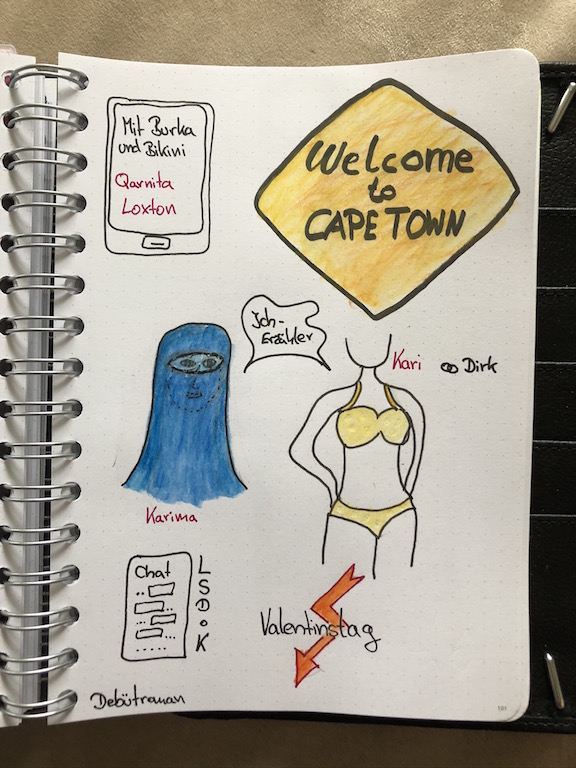 Mit Burka
und Bikini
Qarnita
Loxton
Welcome
to
CAPE TOWN
Ich-
Erzähler
Kari ∞ Dirk
Karima
Chat
L
S
D
o
K
Valentinstag
Debütroman
101